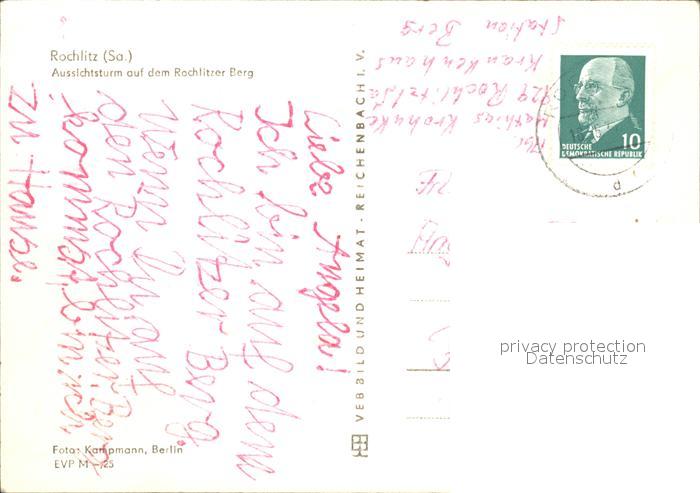 Rochlitz (Sa.)
Aussichtsturm auf dem Rochlitzer Berg
Liebe Angela!
Ich bin auf dem
Rochlitzer Berg.
Wenn Du auf
den Rochlitzer Berg
kommst bin ich
zu Hause.
Foto: Kampmann, Berlin
EVP M –,25
VEB BILD UND HEIMAT · REICHENBACH I. V.
Mathias
929 Rochlitz/Sa
Krankenhaus
Station Berg
10
DEUTSCHE
DEMOKRATISCHE REPUBLIK
d
privacy protection
Datenschutz